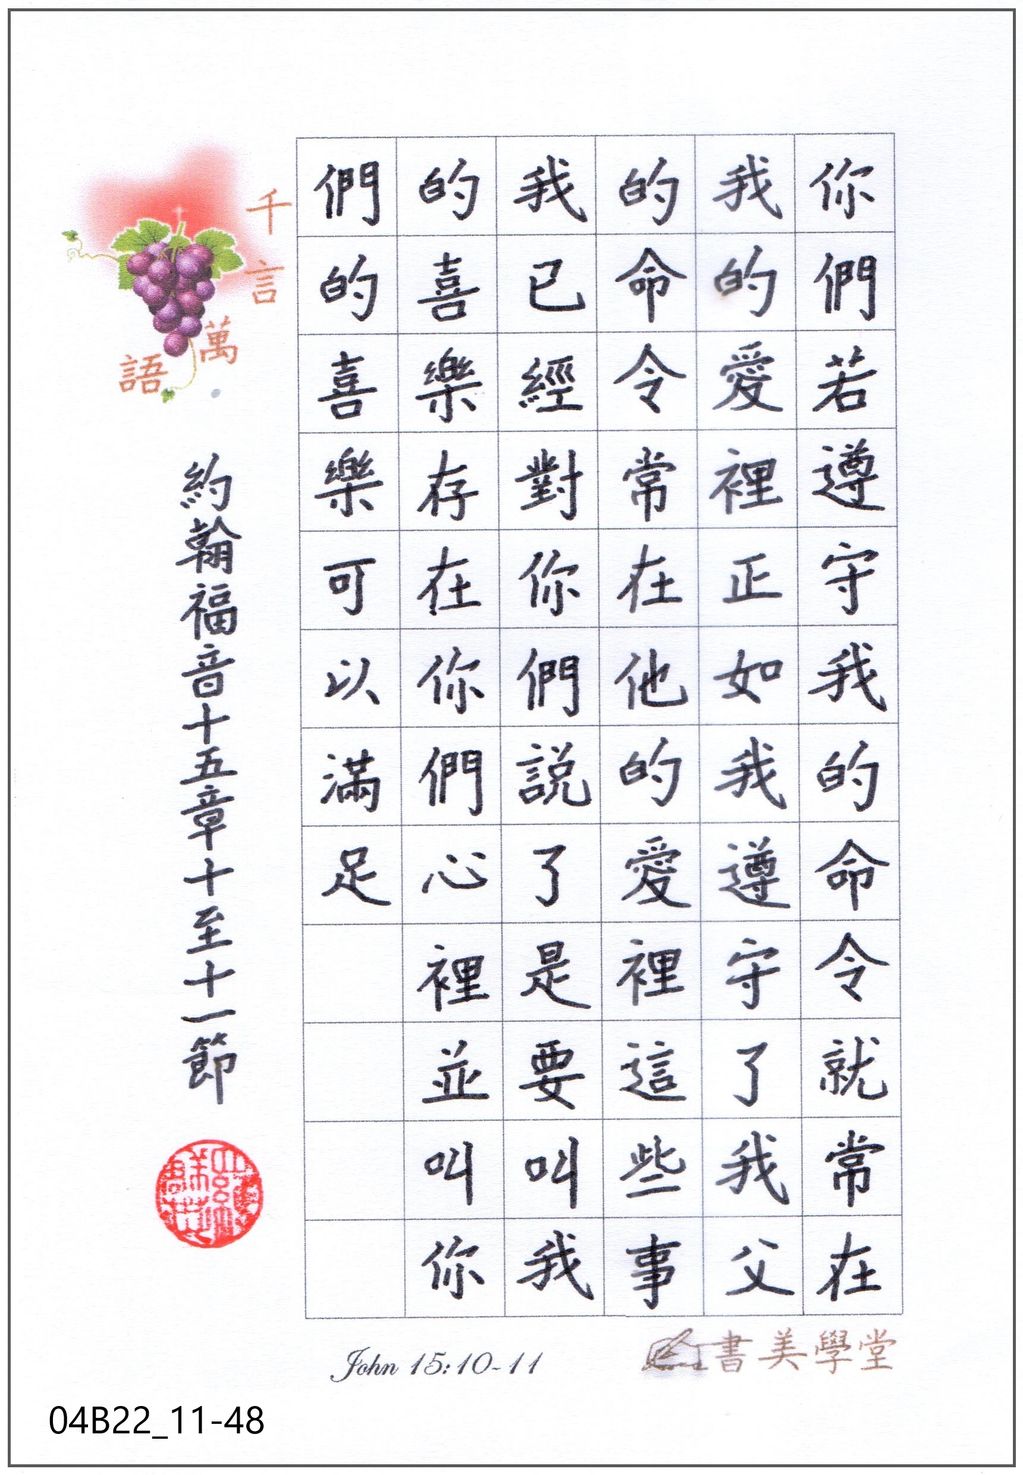 你們若遵守我的命令就常在
我的愛裡正如我遵守了我父
的命令常在他的愛裡這些事
我已經對你們說了是要叫我
的喜樂存在你們心裡並叫你
們的喜樂可以滿足
千言萬語
約翰福音十五章十至十一節
John 15:10-11
書美學堂
04B22_11-48